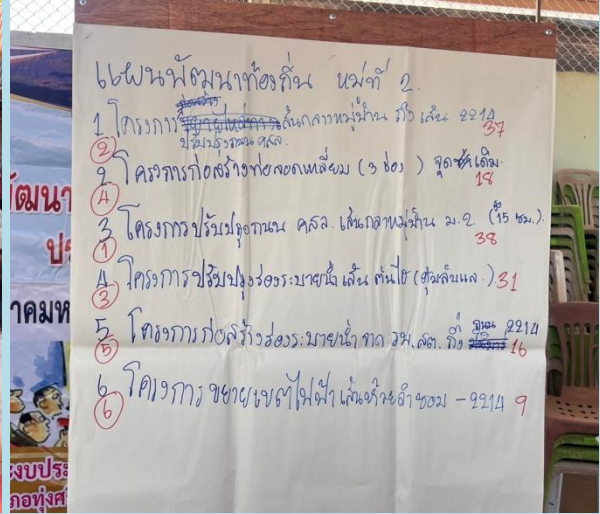 แผนพัฒนาท้องถิ่น หมู่ที่ 2.
1 โครงการ เส้นกลางหมู่บ้าน ถึง เส้น 2214
ปรับปรุงถนน คสล. 37
②
2 โครงการก่อสร้างท่อลอดเหลี่ยม (3 ช่อง) จุดเดิม
④ 18
3 โครงการปรับปรุงถนน คสล. เส้นกลางหมู่บ้าน ม.2 (15 ซม.).
① 38
4 โครงการปรับปรุงร่องระบายน้ำ เส้น 31
③
5 โครงการก่อสร้างร่องระบายน้ำ จาก รพ.สต. ถึง ถนน 2214
⑤ 16
6 โครงการขยายเขตไฟฟ้า เส้นห้วยลำซอม - 2214 9
⑥
ัฒนา
ปร
าคมห
งบประ
ภอทุ่งศ